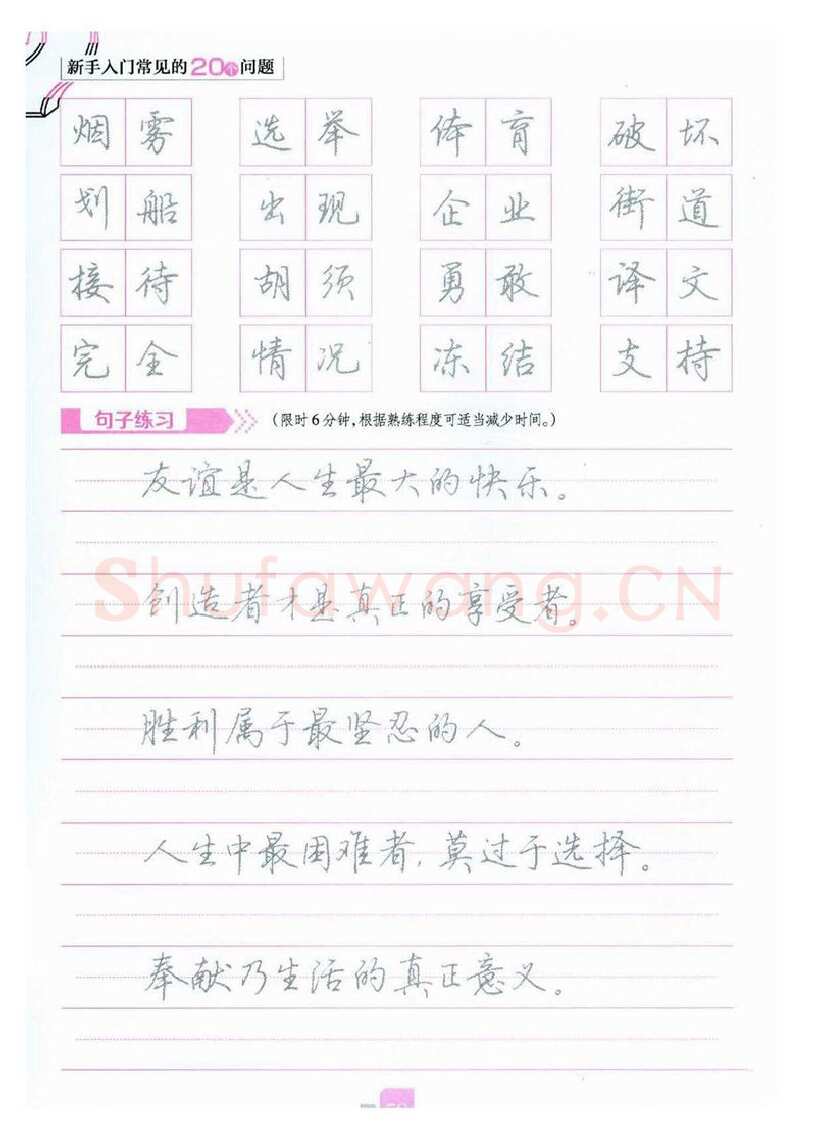 新手入门常见的20个问题
烟雾 选举 体育 破坏
划船 出现 企业 街道
接待 胡须 勇敢 译文
完全 情况 冻结 支持
句子练习 (限时6分钟,根据熟练程度可适当减少时间。)
友谊是人生最大的快乐。
Shufawang.CN
创造者才是真正的享受者。
胜利属于最坚忍的人。
人生中最困难者,莫过于选择。
奉献乃生活的真正意义。